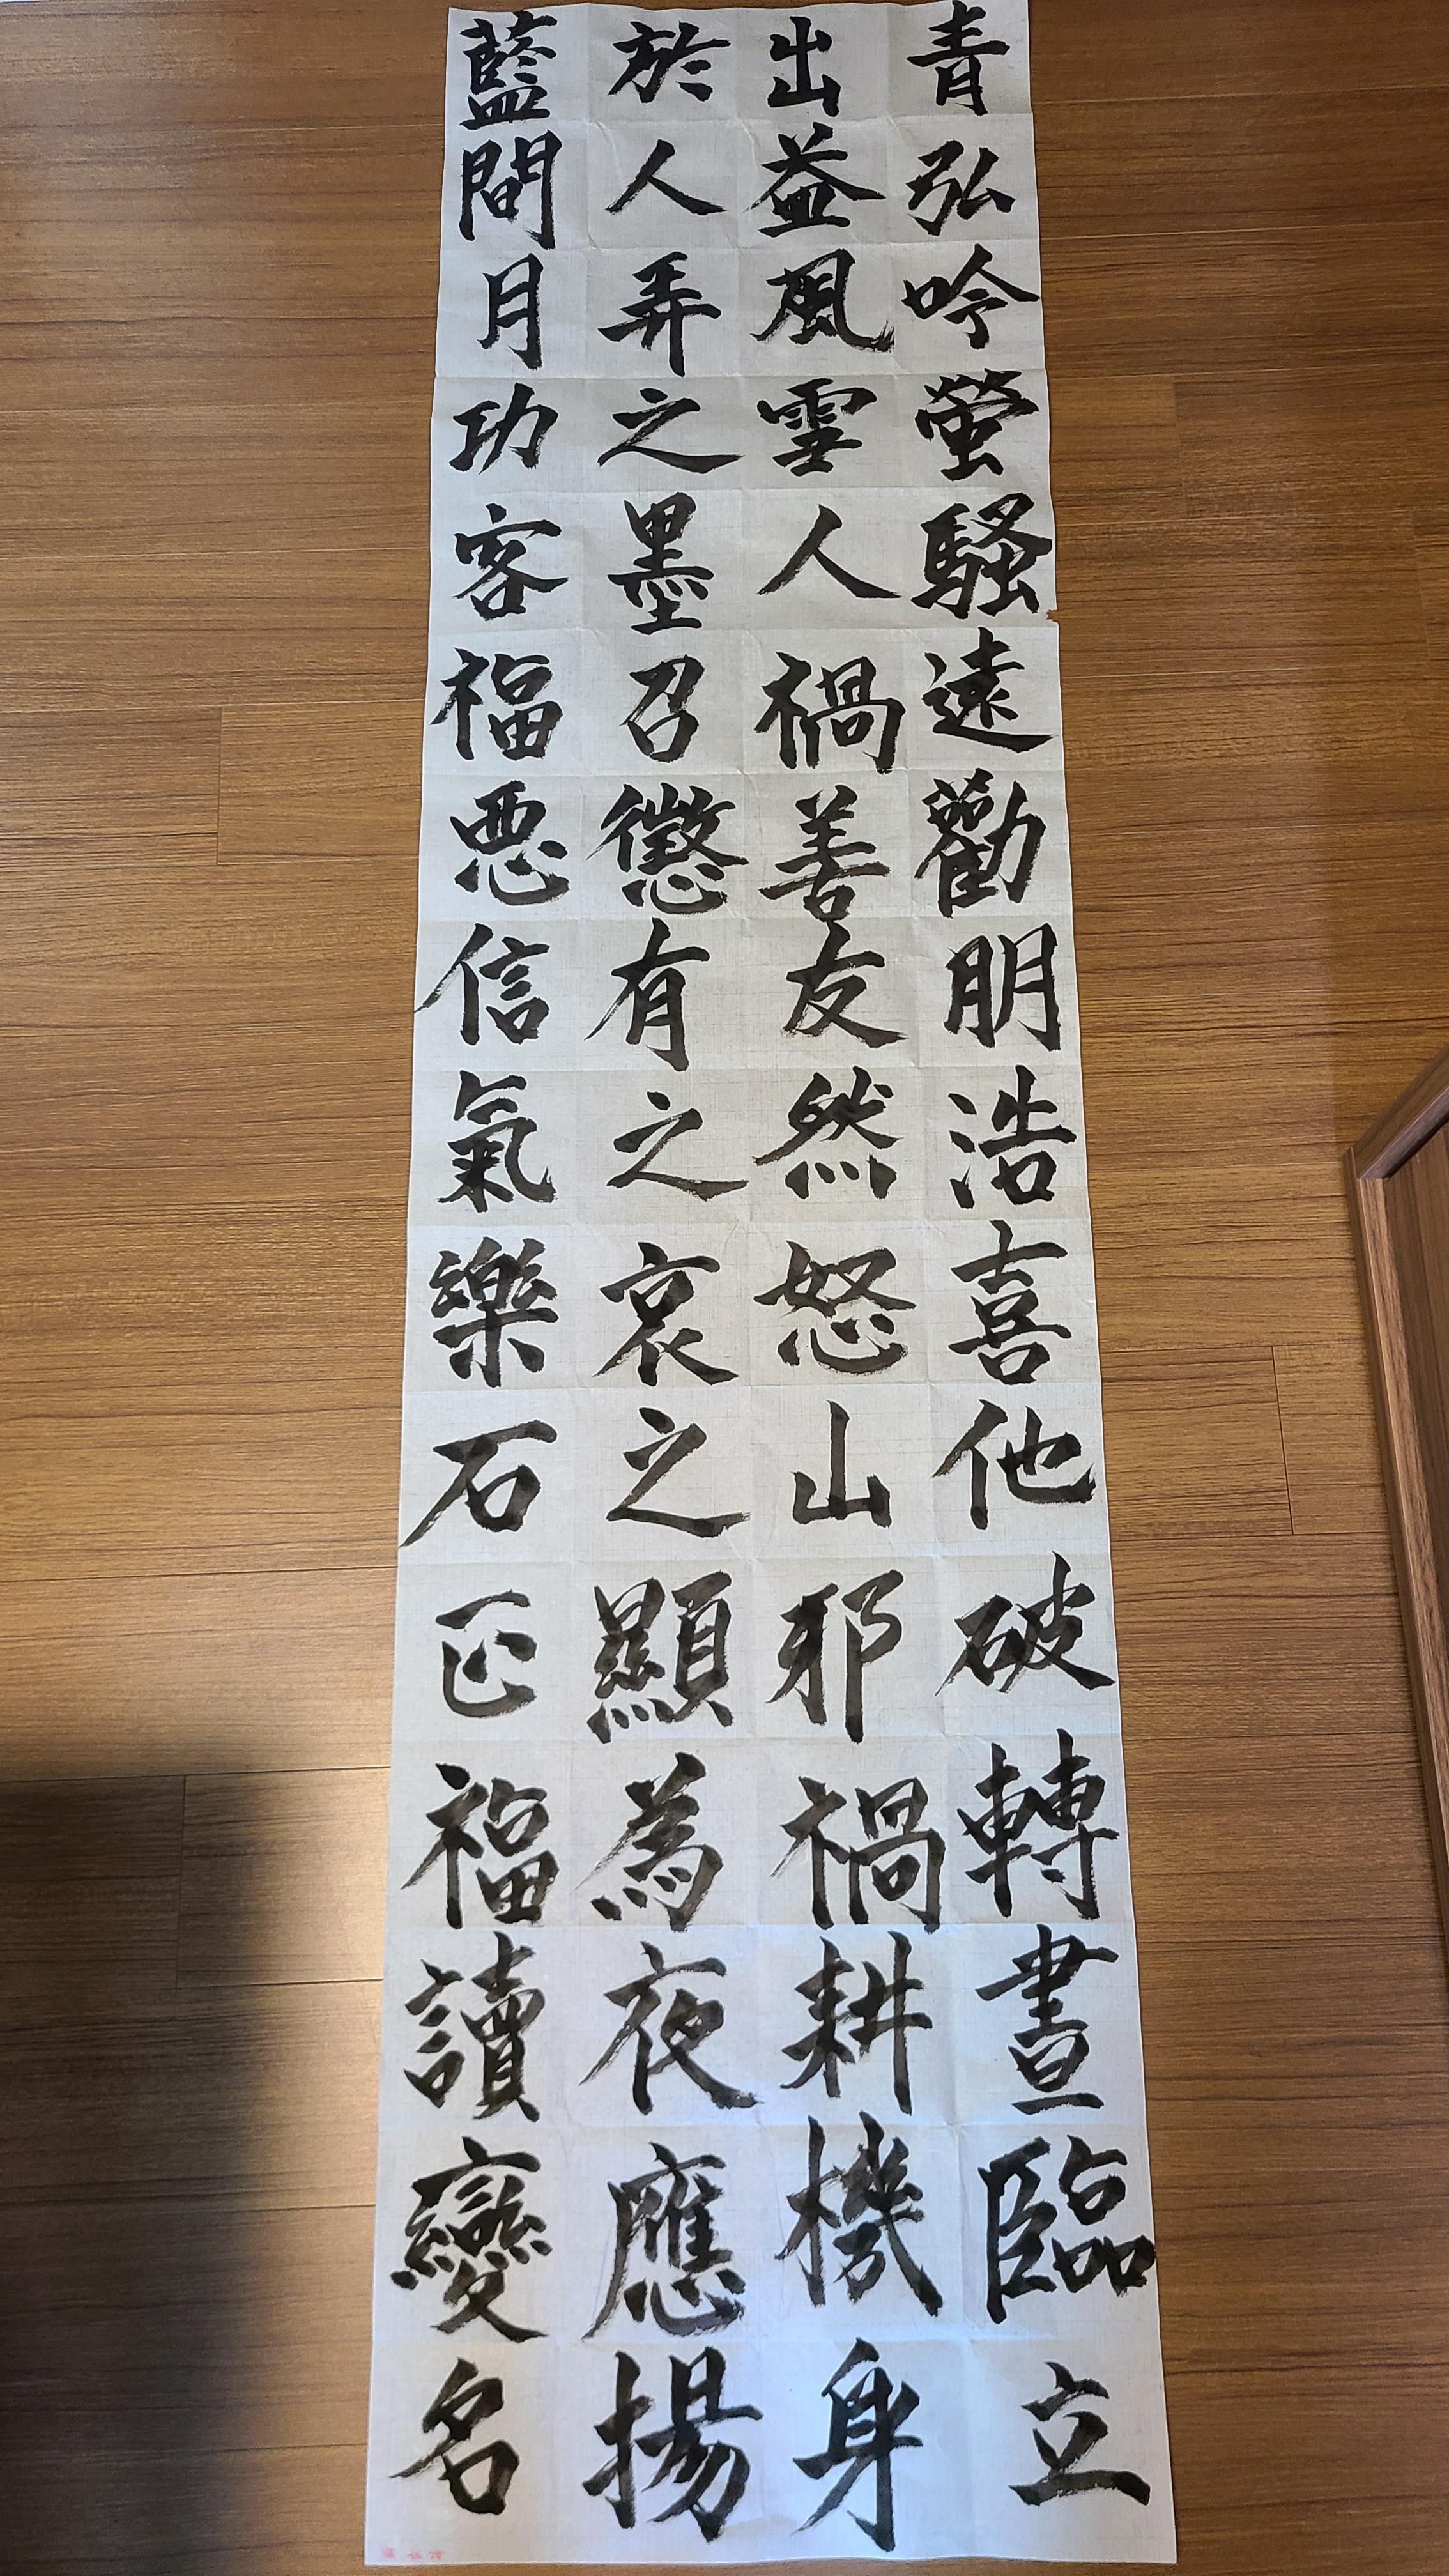 青出於藍
弘益人間
吟風弄月
螢雪之功
騷人墨客
遠禍召福
勸善懲悪
朋友有信
浩然之氣
喜怒哀樂
他山之石
破邪顯正
轉禍為福
晝耕夜讀
臨機應變
立身揚名